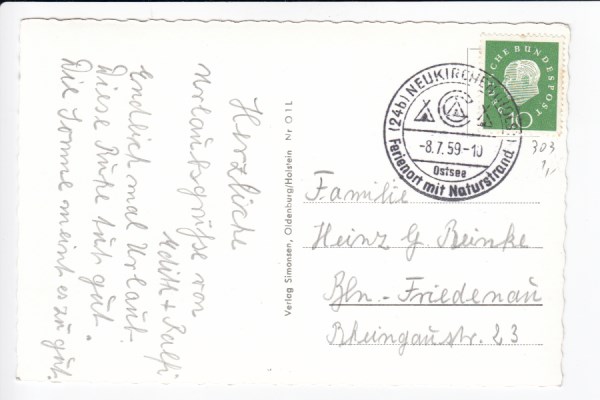 Herzliche
Urlaubsgrüße von
Edith + Ralf
Endlich mal Urlaub.
Diese Ruhe tut gut.
Die Sonne meint es zu gut.
Verlag Simonsen, Oldenburg/Holstein Nr O 1 L
DEUTSCHE BUNDESPOST
10
(24b) NEUKIRCHEN
-8.7.59-10
Ostsee
Ferienort mit Naturstrand
303
1,-
Familie
Heinz G. Reinke
Bln.-Friedenau
Rheingaustr. 23